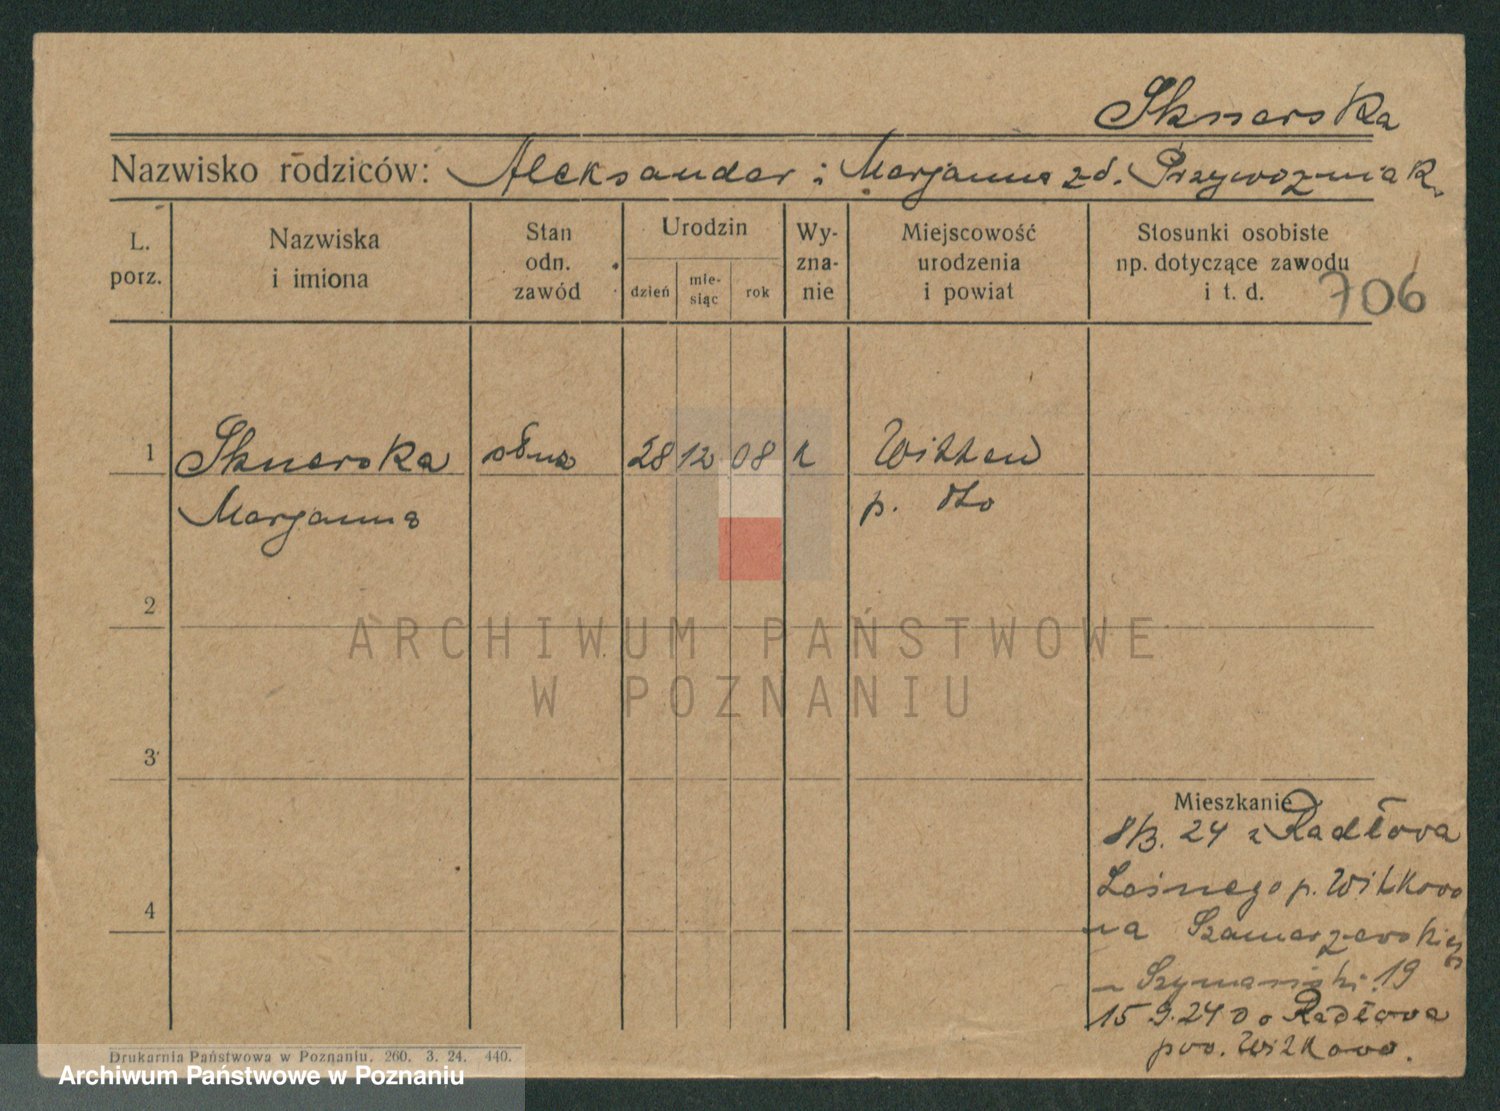 Sknerska
Nazwisko rodziców: Aleksander i Marjanna zd. Przywoźniak.
L. porz.
Nazwiska i imiona
Stan odn. zawód
Urodzin
dzień
mie- siąc
rok
Wy- zna- nie
Miejscowość urodzenia i powiat
Stosunki osobiste np. dotyczące zawodu i t. d.
706
1 Sknerska służ 28 12 08 k Witten
Marjanna p. dto
2
ARCHIWUM PAŃSTWOWE
W POZNANIU
3
Mieszkanie
8/3. 24 z Radłowa
4
Leśnego p. Witkowo
na Szamarzewskiego
~ Szymański. 19
15 9. 24 do Radłowa
pow. Witkowo.
Drukarnia Państwowa w Poznaniu. 260. 3. 24. 440.
Archiwum Państwowe w Poznaniu